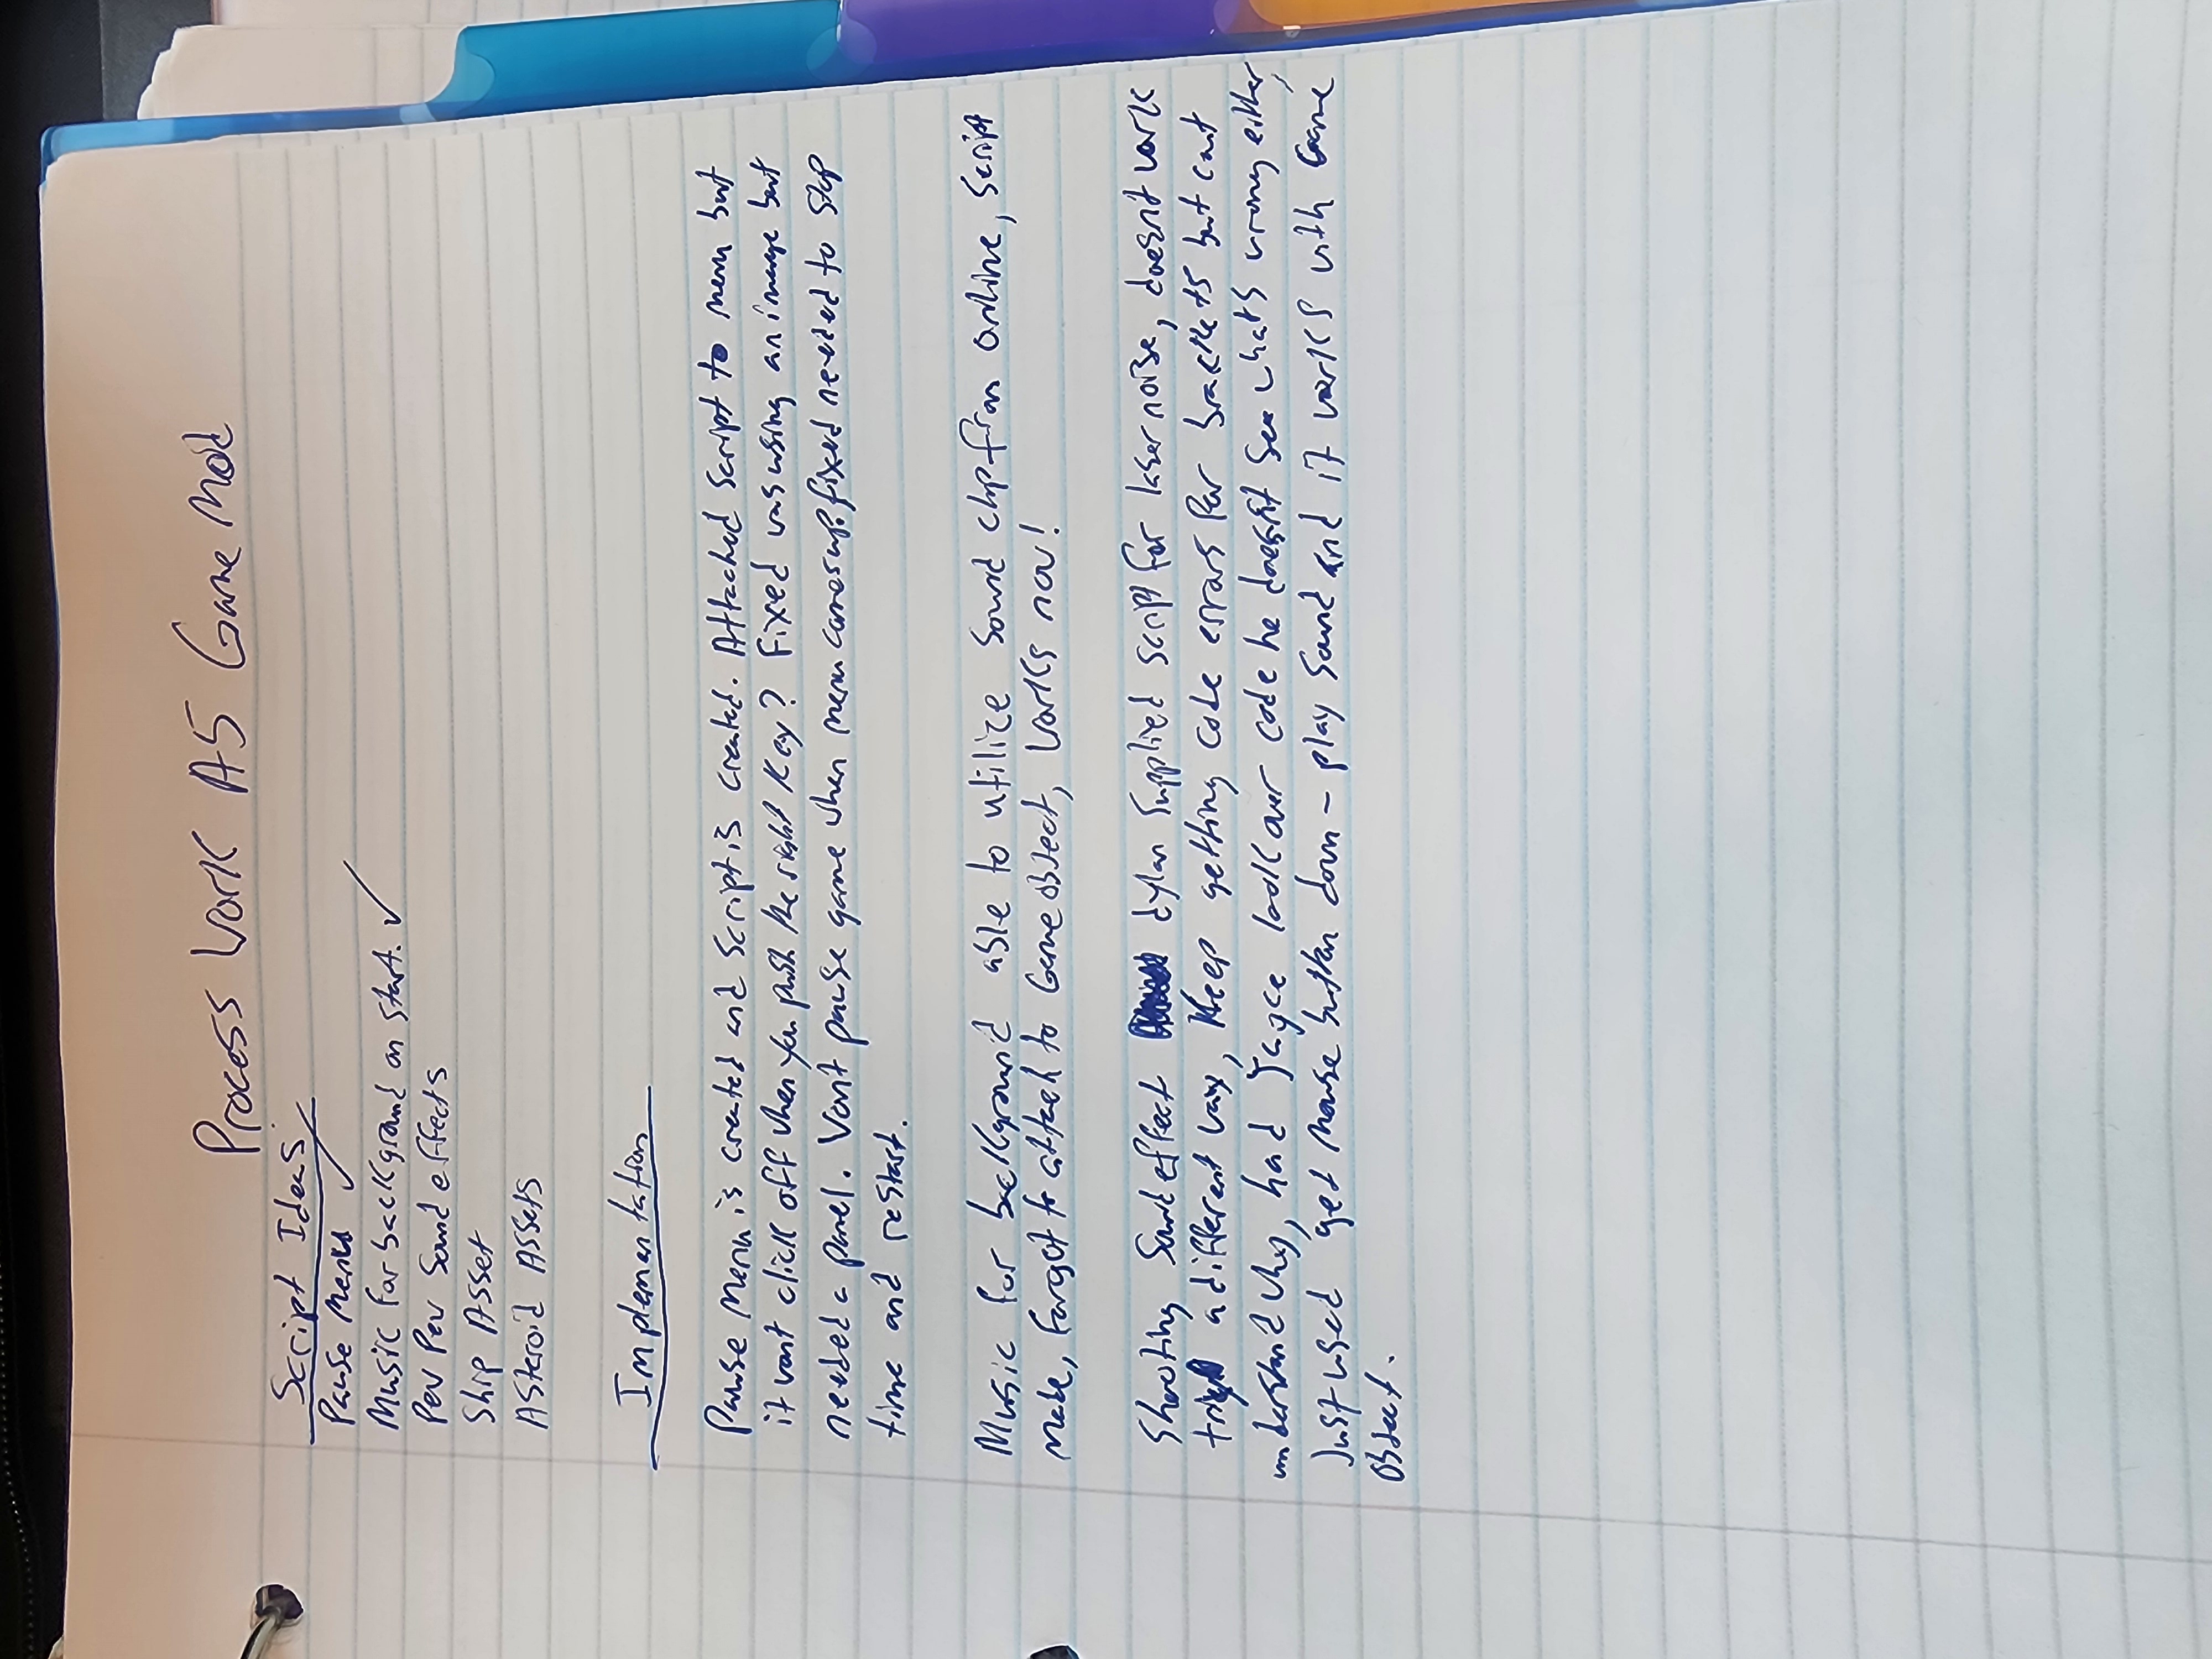 Process Work A5 Game Mod
Script Ideas
Pause Menu ✓
Music for background on start. ✓
Pew Pew Sound effects
Ship Asset
Asteroid Assets
Implementation
Pause Menu is created and script is created. Attached script to menu but
it wont click off when you push the right key? Fixed was using an image but
needed a panel. Won't pause game when menu comes up? fixed needed to stop
time and restart.
Music for background able to utilize sound clip from online, script
made, forgot to attach to Game object, works now!
Shooting Sound effect dylan supplied script for laser noise, doesn't work
trying a different way, Keep getting code errors for brackets but cant
understand why, had Jayce look over code he doesn't see whats wrong either,
Just used get mouse button down - play sound and it works with Game
object.